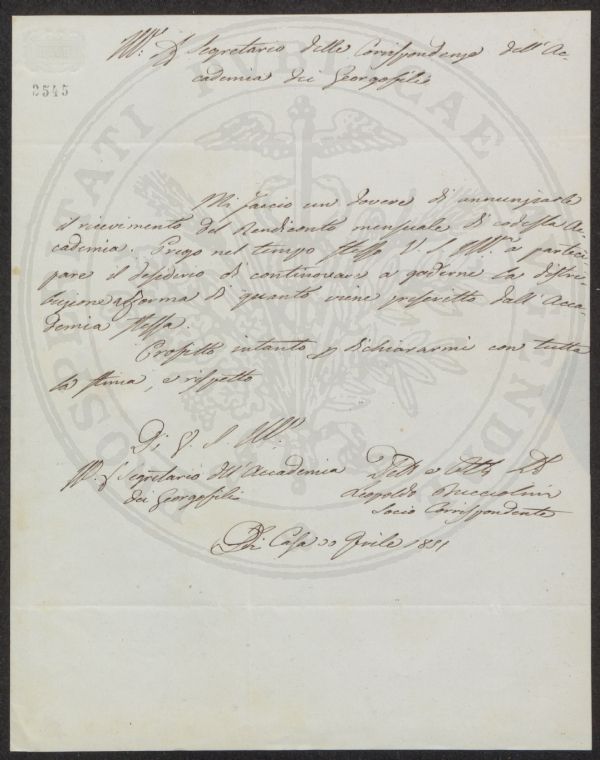 Ill.mo Sig. Segretario delle Corrispondenze dell'Ac-
cademia dei Georgofili
2545
PROSPERITATI PUBLICAE AUGENDAE
Mi faccio un dovere di annunziarle
il ricevimento del Rendiconto mensuale di codesta Ac-
cademia. Prego nel tempo stesso V. S. Ill.ma a parteci-
pare il desiderio di continovare a goderne la distri-
buzione a forma di quanto viene prescritto dall'Acca-
demia stessa.
Profitto intanto p dichiararmi con tutta
la stima, e rispetto
Di V. S. Ill.
Segretario dell'Accademia
dei Georgofili
Leopoldo
Socio Corrispondente
Di Casa 22 Aprile 1851